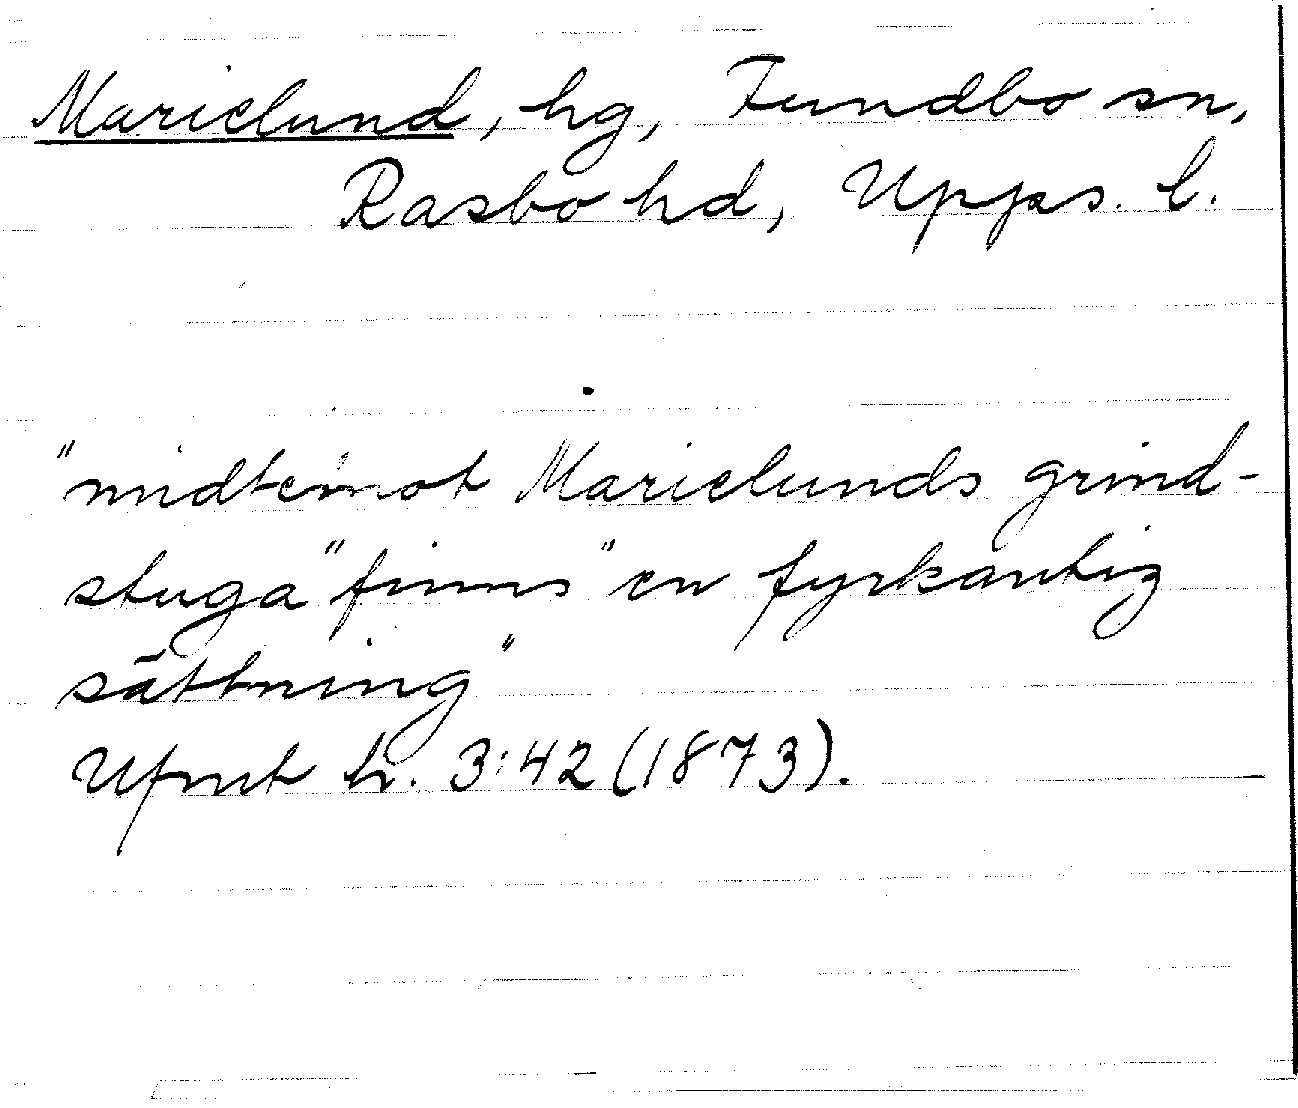 Marielund, hg, Funbo sn,
Rasbo hd, Upps. l.
"midtemot Marielunds grind-
stuga" finns "en fyrkantig
sättning"
Ufmt h. 3:42 (1873).